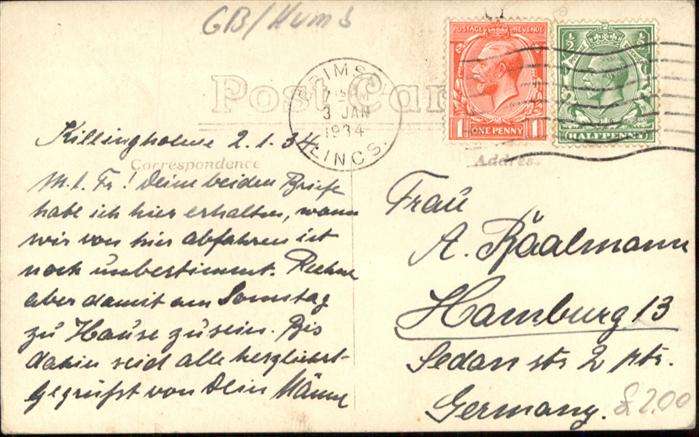 GB/Humb
POSTAGE REVENUE
1 ONE PENNY 1
½ ½
HALFPENNY
GRIMSBY
3 JAN
1934
LINCS.
Post Card
Correspondence
Address
Killingholme 2.1.34.
M. l. Fr! Deine beiden Briefe
habe ich hier erhalten, wann
wir von hier abfahren ist
noch unbestimmt. Rechne
aber damit am Sonntag
zu Hause zu sein. Bis
dahin seid alle herzlichst
gegrüsst von Dein Männe
Frau
A. Rääлmann
Hamburg 13
Sedanstr 2 ptr.
Germany.
8.2.00